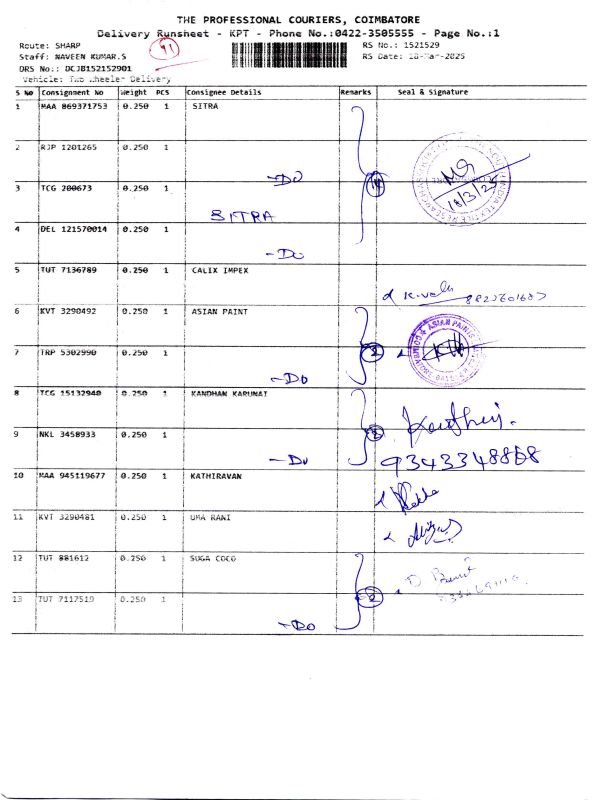 THE PROFESSIONAL COURIERS, COIMBATORE
Delivery Runsheet - KPT - Phone No.:0422-3505555 - Page No.:1
Route: SHARP
RS No.: 1521529
Staff: NAVEEN KUMAR.S
RS Date: 18-Mar-2025
DRS No.: DCJB152152901
Vehicle: Two Wheeler Delivery
S No Consignment No Weight PCS Consignee Details Remarks Seal & Signature
1 MAA 869371753 0.250 1 SITRA
2 RJP 1201265 0.250 1
-Do
3 TCG 200673 0.250 1
SITRA
18/3/25
4 DEL 121570014 0.250 1
-Do
5 TUT 7136789 0.250 1 CALIX IMPEX
6 KVT 3290492 0.250 1 ASIAN PAINT
ASIAN PAINTS
7 TRP 5302990 0.250 1
2
-Do
8 TCG 15132940 0.250 1 KANDHAN KARUNAI
9 NKL 3458933 0.250 1
-Do
10 MAA 945119677 0.250 1 KATHIRAVAN
11 KVT 3290481 0.250 1 UMA RANI
12 TUT 881612 0.250 1 SUGA COCO
13 TUT 7117519 0.250 1
2
-Do